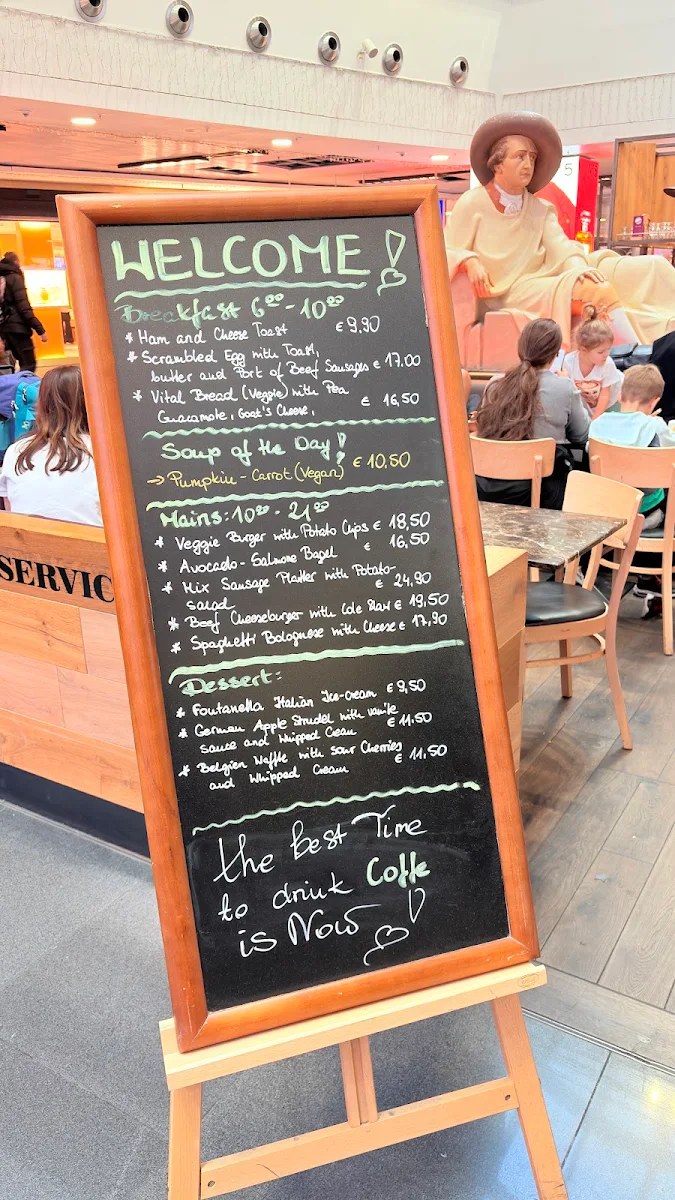 WELCOME!
Breakfast 6⁰⁰ - 10⁰⁰
* Ham and Cheese Toast € 9,90
* Scrambled Egg with Toast,
butter and Port of Beef Sausages € 17.00
* Vital Bread (Veggie) with Pea
Guacamole, Goat's Cheese, € 16,50
Soup of the Day!
→ Pumpkin - Carrot (Vegan) € 10.50
Mains: 10⁰⁰ - 21⁰⁰
* Veggie Burger with Potato Chips € 18,50
* Avocado - Salmone Bagel € 16,50
* Mix Sausage Platter with Potato-
salad € 24,90
* Beef Cheeseburger with Cole Slaw € 19,50
* Spaghetti Bolognese with Cheese € 17,90
Dessert:
* Fontanella Italian Ice-cream € 9,50
* German Apple Strudel with vanile
sauce and Whipped Cream € 11.50
* Belgien Waffle with sour Cherries
and Whipped Cream € 11,50
the best Time
to drink Coffe
is Now!
SERVIC
5